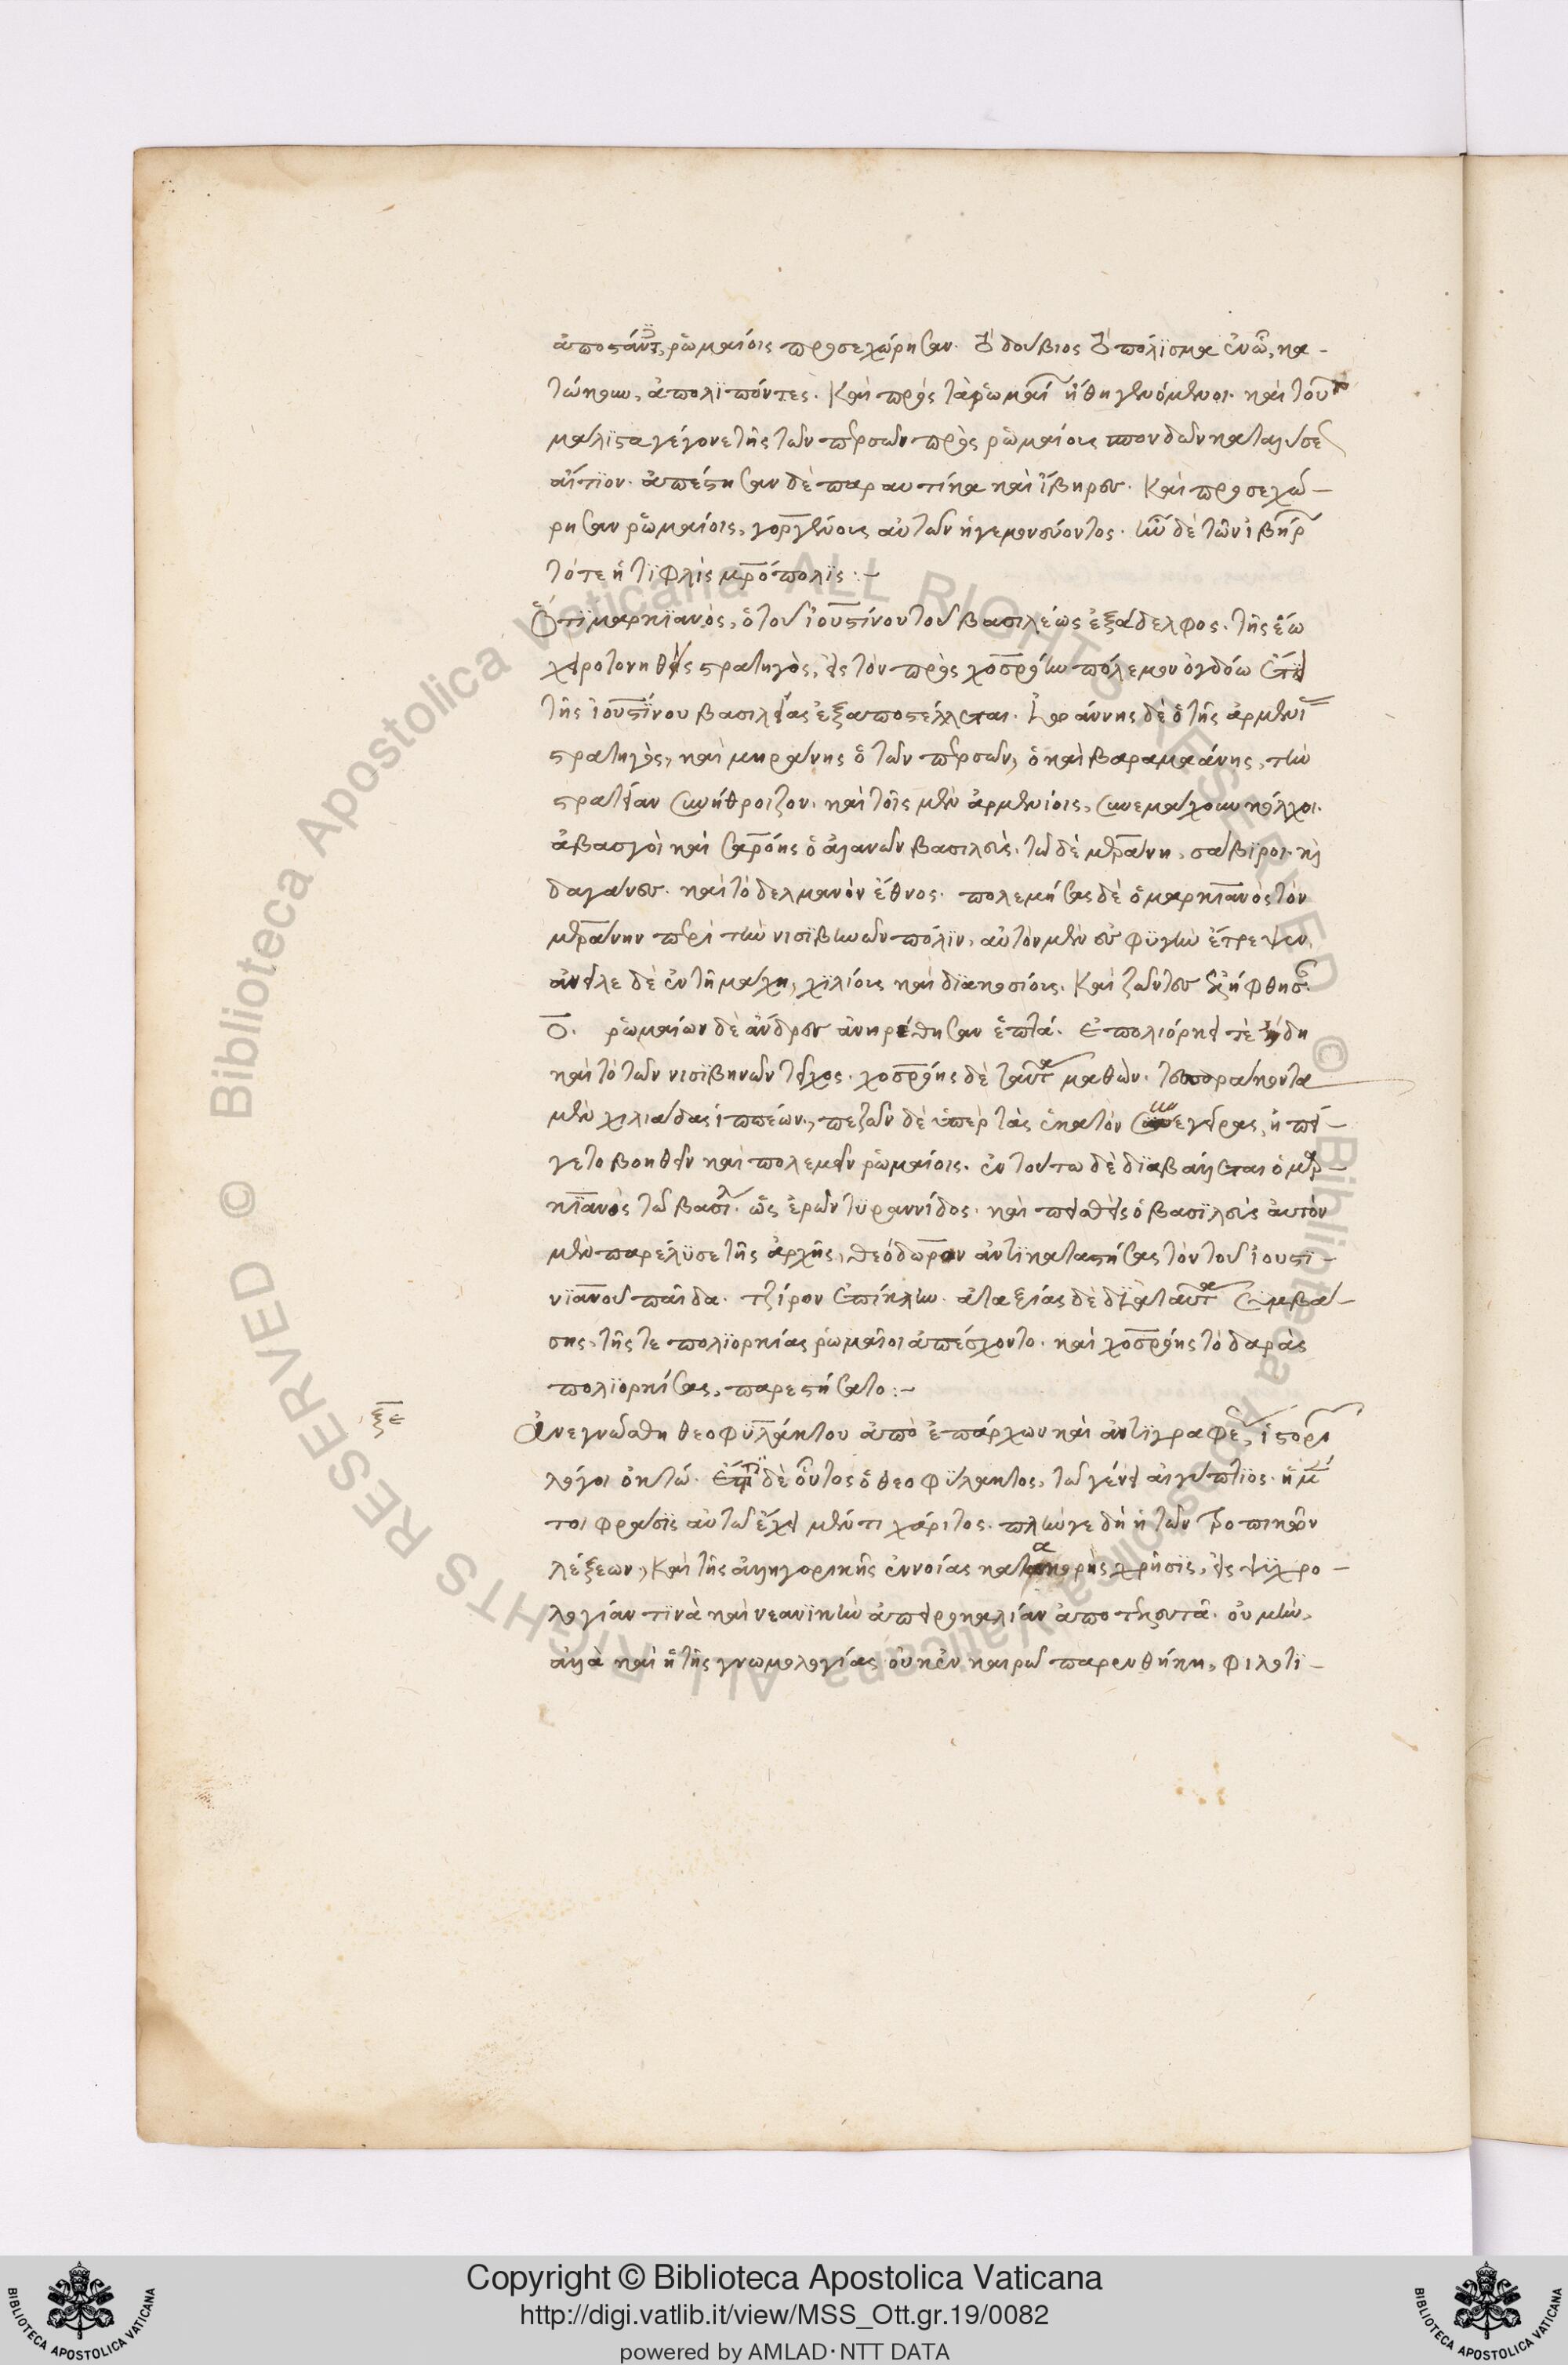 ἀποστάντες, ῥωμαίοις προσεχώρησαν. τὸ δούβιος τὸ πόλισμα ἐν ᾧ κα-
τώκουν, ἀπολιπόντες. καὶ πρὸς τὰ ῥωμαί ἤθη γενόμενοι. καὶ τοῦτο
μάλιστα γέγονε τῆς τῶν περσῶν πρὸς ῥωμαίους σπονδῶν καταλύσε
αἴτιον. ἀπέστησαν δὲ παραυτίκα καὶ ἴβηρες. καὶ προσεχώ-
ρησαν ῥωμαίοις, γοργένους αὐτῶν ἡγεμονεύοντος. ἦν δὲ τῶν ἰβήρ
τότε ἡ τιφλὶς μρόπολις:-
Ὅτι μαρκιανὸς, ὁ τοῦ ἰουστίνου τοῦ βασιλέως ἐξάδελφος. τῆς ἕω
χειροτονηθεὶς στρατηγὸς, εἰς τὸν πρὸς χοσρόην πόλεμον ὀγδόω ἔτει
τῆς ἰουστίνου βασιλείας ἐξαποστέλλεται. ἰωάννης δὲ ὁ τῆς ἀρμενί
στρατηγὸς, καὶ μηράνης ὁ τῶν περσῶν, ὁ καὶ βαραμαάνης, τὴν
στρατείαν συνήθροιζον. καὶ τοῖς μὲν ἀρμενίοις, συνεμάχουν κόλχοι.
ἀβασγοὶ καὶ σαρόης ὁ ἀλανῶν βασιλεύς. τῷ δὲ μιράνη, σάβιροι. καὶ
δαγάνες. καὶ τὸ δελμανὸν ἔθνος. πολεμήσας δὲ ὁ μαρκιανὸς τὸν
μιράνην περὶ τὴν νισιβηνῶν πόλιν, αὐτὸν μὲν εὐφυγὴν ἔτρεψεν
ἀνεῖλε δὲ ἐν τῇ μάχη, χιλίους καὶ διακοσίους. καὶ ζῶντες ἐλήφθησ
ο. ῥωμαίων δὲ ἄνδρες ἀνηρέθησαν ἑπτά. ἐπολιόρκει τὲ ἤδη
καὶ τὸ τῶν νισιβηνῶν τεῖχος. χοσρόης δὲ ταῦτα μαθὼν. τεσσαράκοντα
μὲν χιλιάδας ἱππέων, πεζῶν δὲ ὑπὲρ τὰς ἑκατὸν συνεγείρας, ἠπεί-
γετο βοηθεῖν καὶ πολεμεῖν ῥωμαίοις. ἐν τούτω δὲ διαβάλλεται ὁ μαρ-
κιανὸς τῷ βασιλ. ὡς ἐρῶν τυραννίδος. καὶ πεισθεὶς ὁ βασιλεὺς αὐτὸν
μὲν παρέλυσε τῆς ἀρχῆς, θεόδωρον ἀντικαταστήσας τὸν τοῦ ἰουστι-
νιανοῦ παῖδα. τζίρον ἐπίκλην. ἀταξίας δὲ διὰ ταῦτα συμβά-
σης, τῆς τε πολιορκίας ῥωμαῖοι ἀπέσχοντο. καὶ χοσρόης τὸ δαρὰς
πολιορκήσας, παρεστήσατο:-
ξε
Ἀνεγνώσθη θεοφυλάκτου ἀπὸ ἐπάρχων καὶ ἀντιγραφέ, ἱστορι
λόγοι ὀκτώ. ἔστι δὲ οὗτος ὁ θεοφύλακτος, τῷ γένει αἰγύπτιος. ἡ μέν
τοι φράσις αὐτῷ ἔχει μέν τι χάριτος. πλήν γε δὴ ἡ τῶν τροπικῶν
λέξεων, καὶ τῆς ἀλληγορικῆς ἐννοίας κατακορὴς χρῆσις, εἰς ψυχρο-
λογίαν τινὰ καὶ νεανικὴν ἀπειροκαλίαν ἀποτελευτᾶ. οὐ μὴν,
ἀλλὰ καὶ ἡ τῆς γνωμολογίας οὐκ ἐν καιρῷ παρενθήκη, φιλοτι-
Copyright © Biblioteca Apostolica Vaticana
http://digi.vatlib.it/view/MSS_Ott.gr.19/0082
powered by AMLAD·NTT DATA